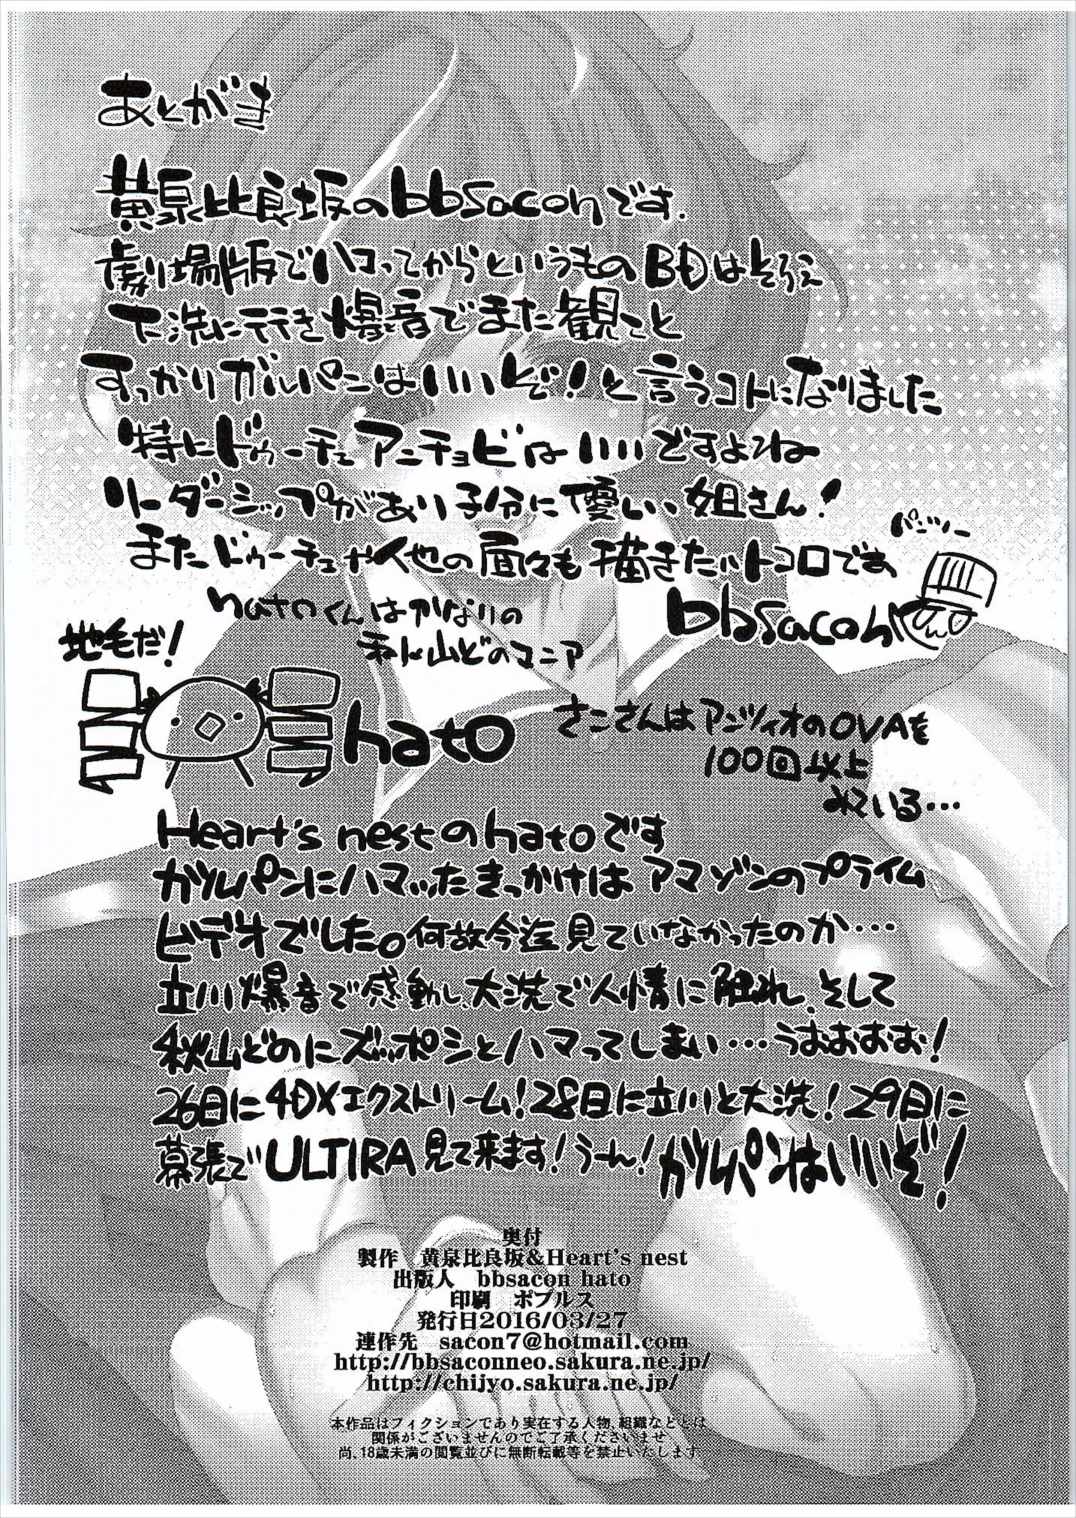 あとがき
黄泉比良坂のbbsaconです.
劇場版でハマってからというものBDはそろえ
大洗に行き爆音でまた観こと
すっかりガルパンはいいぞ!と言うコトになりました
特にドゥーチェアンチョビはいいですよね
リーダーシップがあり子分に優しい、姐さん!
またドゥーチェや他の面々も描きたいトコロです
パンツァー
bbsacon
hatoくんはかなりの
秋山どのマニア
地毛だ!
hato
さこさんはアンツィオのOVAを
100回以上
みている…
Heart's nestのhatoです
ガルパンにハマッたきっかけはアマゾンのプライム
ビデオでした。何故今迄見ていなかったのか…
立川爆音で感動し、大洗で人情に触れ、そして
秋山どのにズッポシとハマってしまい…うおおおお!
26日に4DXエクストリーム!28日に立川と大洗!29日に
幕張でULTIRA見て来ます!うーん!ガルパンはいいぞ!
奥付
製作　黄泉比良坂&Heart's nest
出版人　bbsacon hato
印刷　ポプルス
発行日2016/03/27
連作先　sacon7@hotmail.com
http://bbsaconneo.sakura.ne.jp/
http://chijyo.sakura.ne.jp/
本作品はフィクションであり実在する人物、組織などとは
関係がございませんのでご了承くださいませ
尚、18歳未満の閲覧並びに無断転載等を禁止いたします